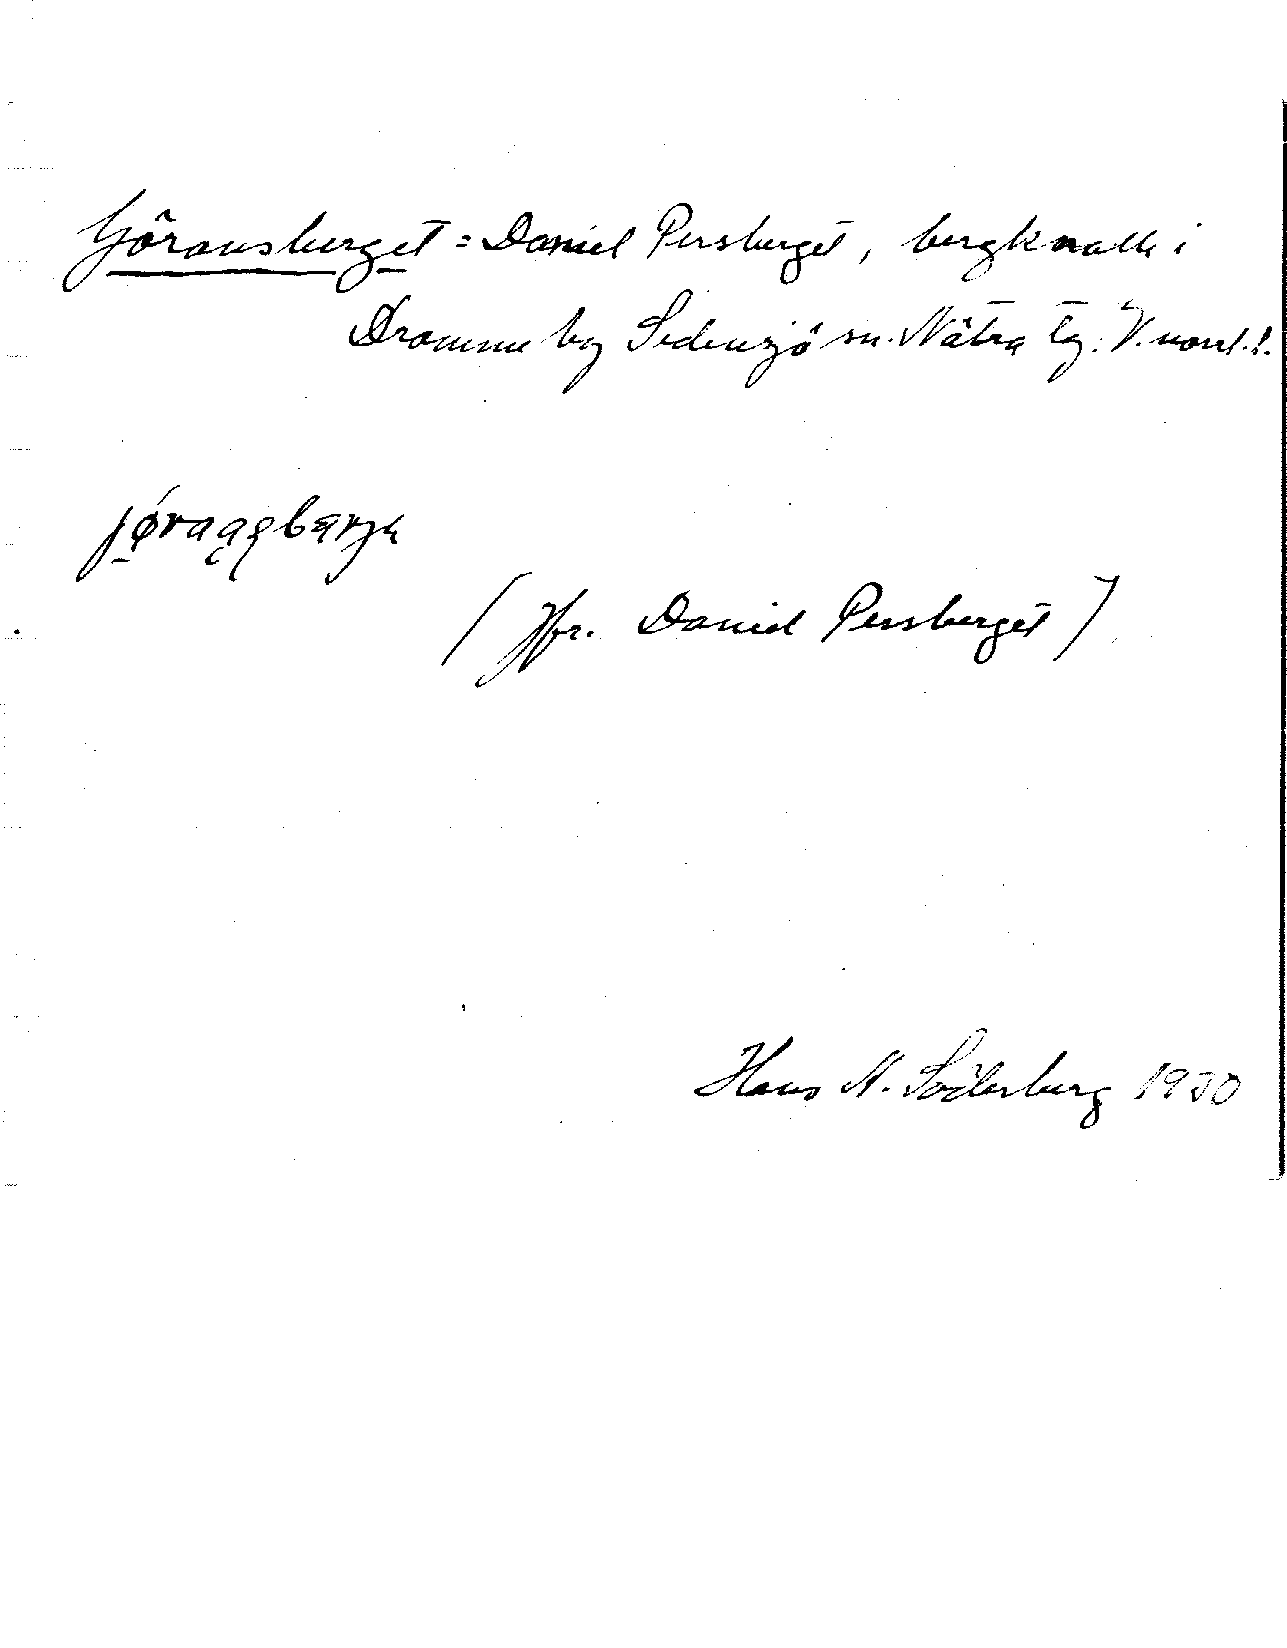 Göransberget = Daniel Persberget, bergknalle i
Dromme by Sidensjö sn. Nätra tg. V. norrl. l.
(Jfr. Daniel Persberget)
Hans N. Söderberg 1930